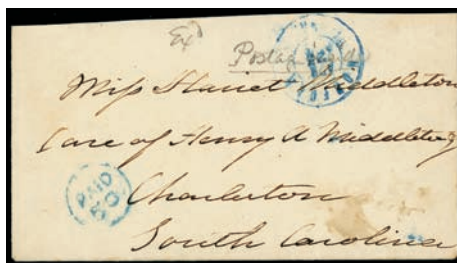 Ex
Postage
Miss Harriet Middleton
Care of Henry A Middleton
PAID
80
Charleston
South Carolina